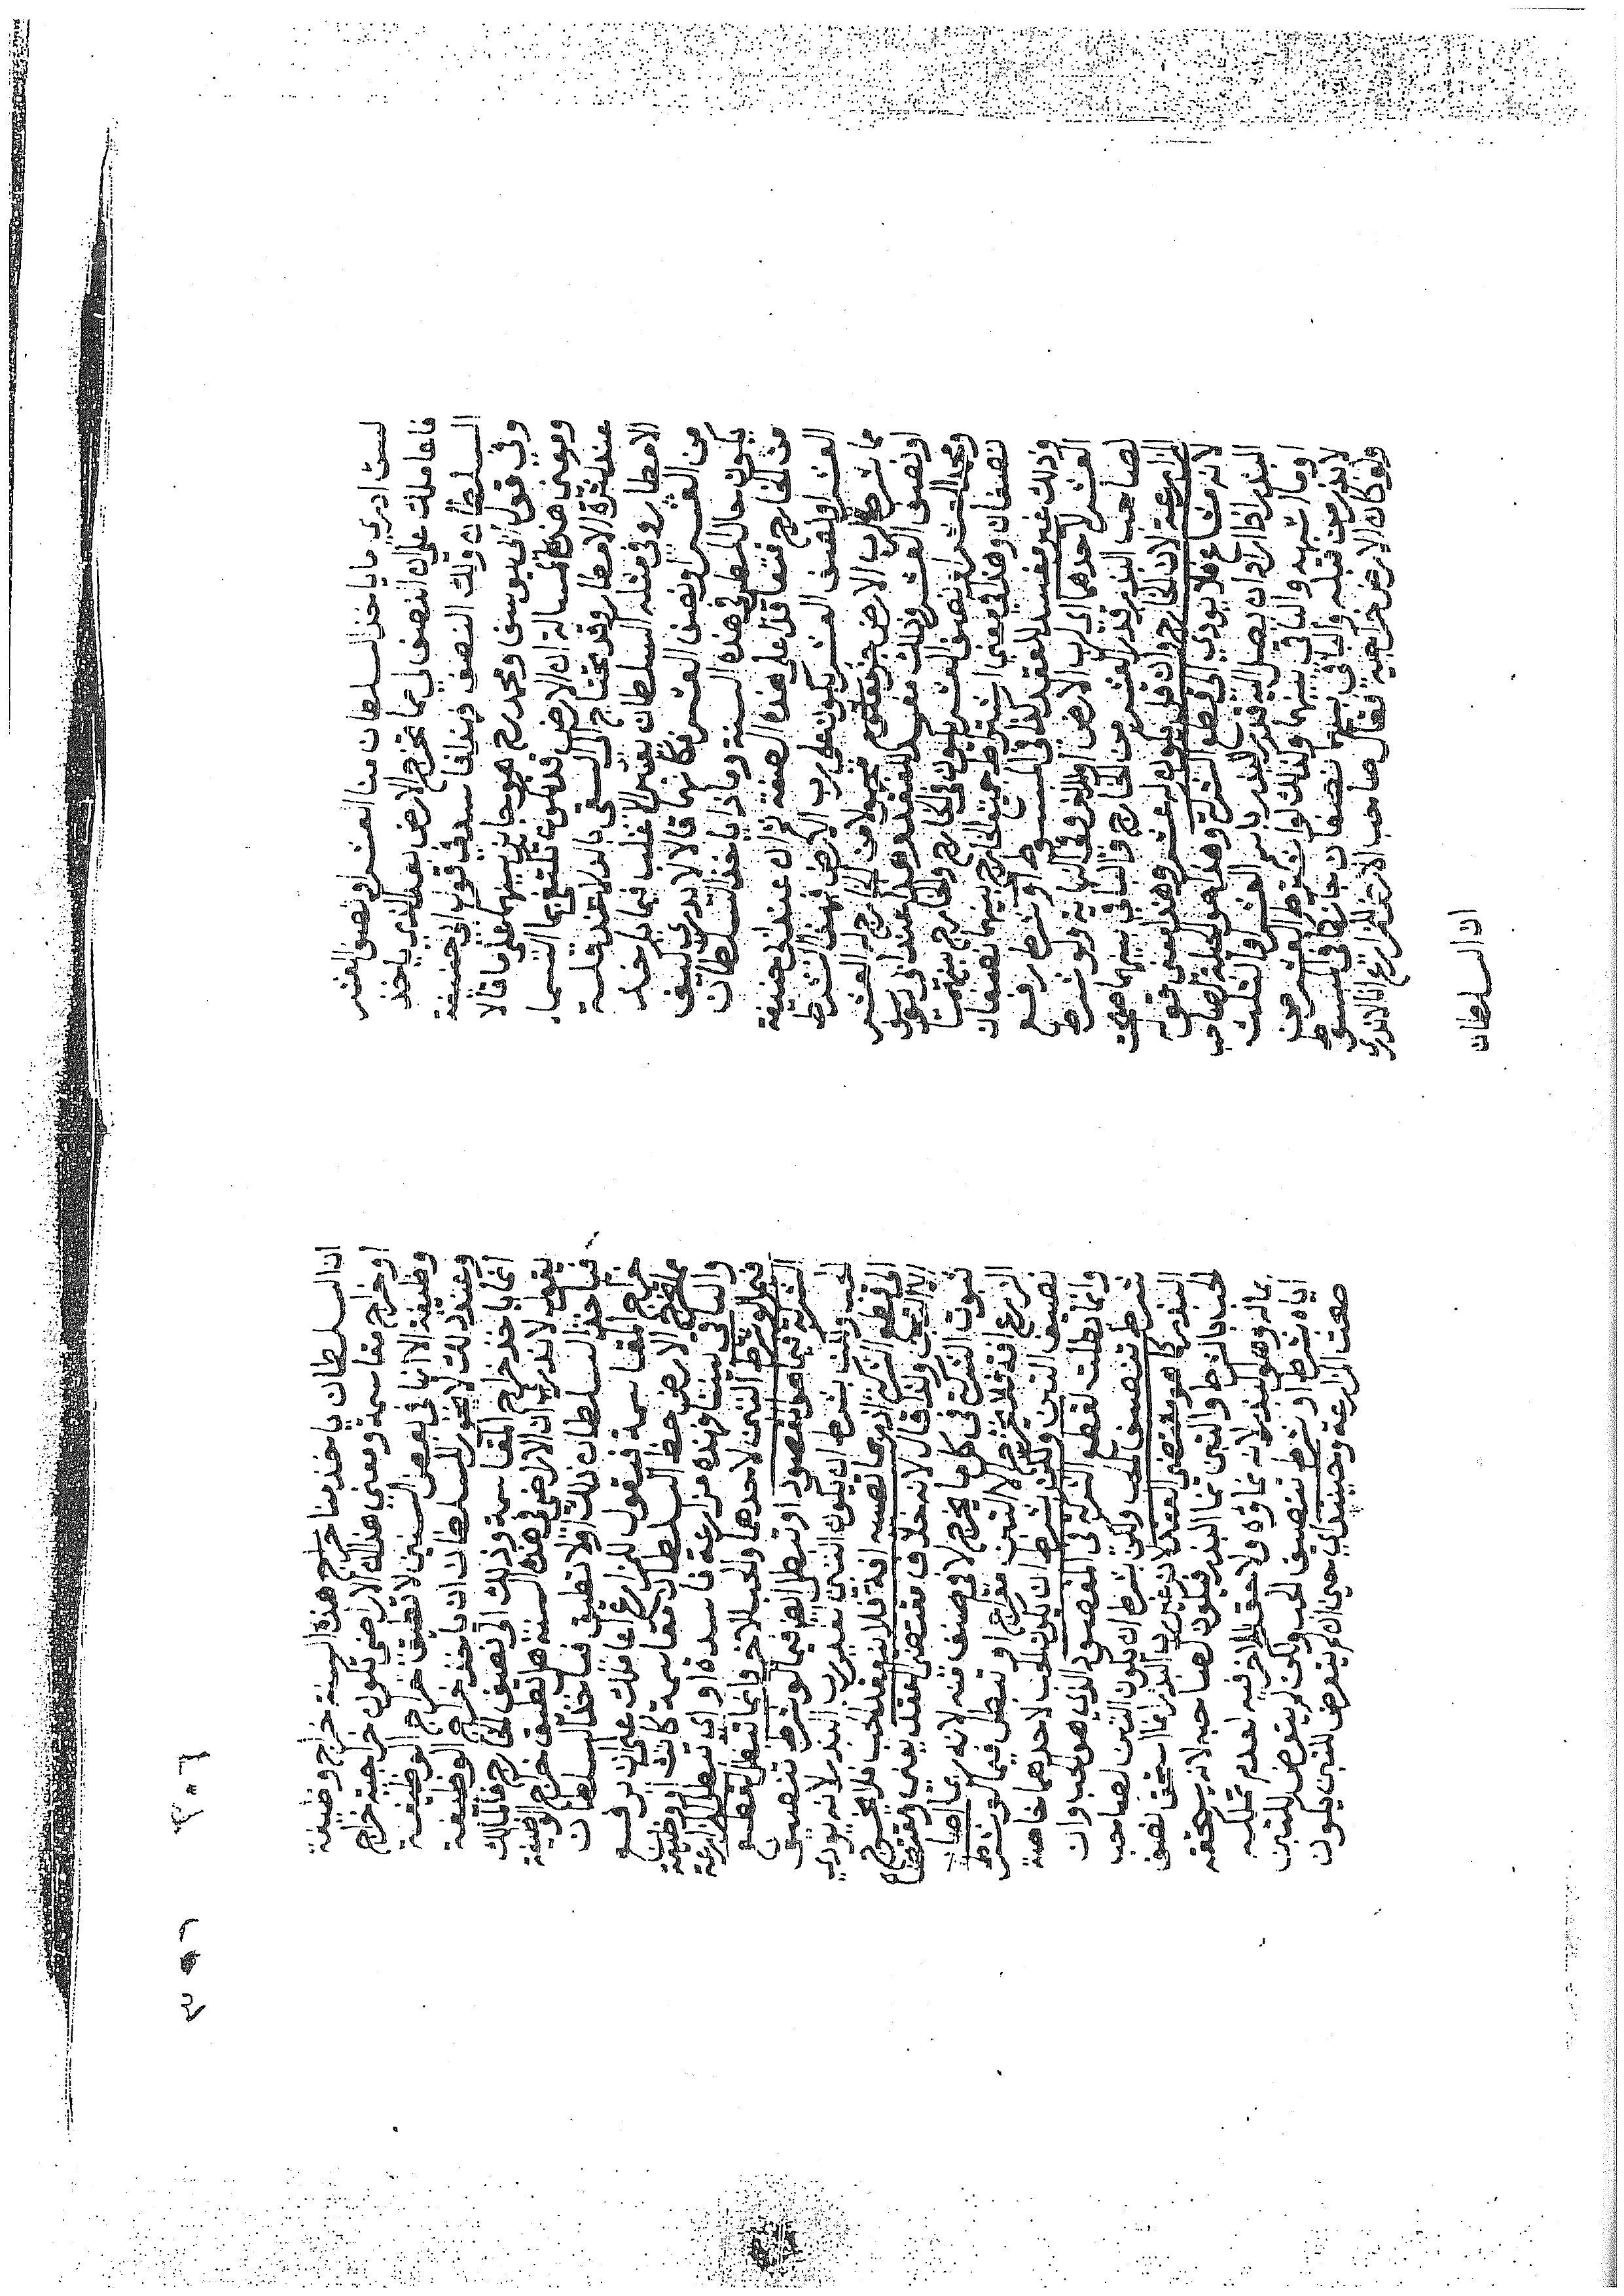 لست ادري ما ياخذ السلطان منا العشر او نصف العشر
فاعاملك على ان النصف لي مما تخرج الارض بعد الذي ياخذ
السلطان ولك النصف فهذا فاسد في قول ابي حنيفة
وفي قول ابي يوسف ومحمد رح هو جايز بينهما على ما قالا
ومعنى هذه المسالة ان الارض قد تكون تكتفي بماء السماء
عند كثرة الامطار وقد تحتاج الى السقي بالدلاء عند قلة
الامطار وفي مثله السلطان يعتبر الاغلب فيما ياخذ
من العشر او نصف العشر فكانهما قالا لا ندري كيف
يكون حال المطر في هذه السنة وماذا ياخذ السلطان
من الخارج فتعاقدا على هذه الصفة ثم ان عند ابي حنيفة
العشر او نصف العشر يكون على رب الارض فهذا الشرط
مما شرط لرب الارض جزء مجهولا من الخارج له العشر
او نصف العشر وذلك مفسد للعقد وعند ابي يوسف
ومحمد العشر او نصف العشر يكون في الخارج والخارج بينهما
نصفان وهذا في معنى اشتراط جميع الخارج بينهما نصفان
وذلك غير مفسد للعقد كذا في المبسوط او شرط رفع
العشر لاحدهما اي لرب الارض في النهاية ولو شرط
لصاحب البذر قدر العشر من الخارج والباقي بينهما صحت
المزارعة لان الخارج وان قل يكون له عشر وهذا معنى قوله
لانه مشاع فلا يودي الى قطع الشركة وهذا هو الحيلة لصاحب
البذر اذا اراد ان يصل اليه قدر البذر باسم العشر او الثلث
او ما اشبهه والباقي بينهما وكذلك لو اشترط العشر لمن
لا بذر من قبله والباقي بينهما نصفان جاز كذا في المبسوط
ولو كان الارض خراجية فقال صاحب الارض للمزارع انا لا ندري
ان السلطان
ان السلطان ياخذ منا خراج هذه السنة خراج وظيفة
او خراج مقاسمة ومعنى هذا ان الاراضي تكون خراجية خراج
وظيفة الا انها في بعض السنين لا تطيق خراج الوظيفة
وعند ذلك لا يجوز للسلطان ان ياخذ خراج الوظيفة
انما ياخذ خراج المقاسمة وذلك الى نصف الخارج فالمالك
يقول لا ندري ان الاراضي في هذه السنة هل تطيق خراج الوظيفة
فياخذ السلطان ذلك او لا تطيق فياخذ السلطان
خراج المقاسمة فيقول للمزارع اعاملك على ان نرفع
مما تخرج الارض حظ السلطان مقاسمة كانت او وظيفة
والباقي بيننا فهذه مزارعة فاسدة او اي تبطل المزارعة
فيما لو شرط التبن لاحدهما والحب للاخر وانما تبطل لقطع
الشركة فيما هو المقصود او تبطل ايضا فيما لو شرط تنصيف
الحب والتبن بشرط ان يكون التبن لغير رب البذر لانه يودي
الى قطع الشركة اذ ربما تصيبه افة فلا ينعقد الحب فلا يخرج
الا التبن ولذا قال لانه خلاف مقتضى العقد يعني ومقتضاه
ثبوت الشركة في كل ما يخرج لا في صنف منه لانه ربما اصاب
الزرع افة فلا يخرج الا التبن او تبطل فيما لو شرط
تنصيف التبن ولكن بشرط ان يكون الحب لاحدهما خاصة
وانما بطلت لقطع الشركة في المقصود الذي هو الحب وان
شرط تنصيف الحب ولكن بشرط ان يكون التبن لصاحب
البذر كما هو مقتضى العقد لان غير رب البذر انما استحق نصف
الحب بالشرط والتبن نما البذر فيكون لصاحبه لانه يستحقه
بماله وهو البذر لانه نماؤه ولا حق للاخر فيه لعدم تمليكه
اياه بشرط او شرط تنصيف الحب ولكن لم يتعرض للتبن
صحت المزارعة وحينئذ اي حين ان لم يتعرض للتبن يكون